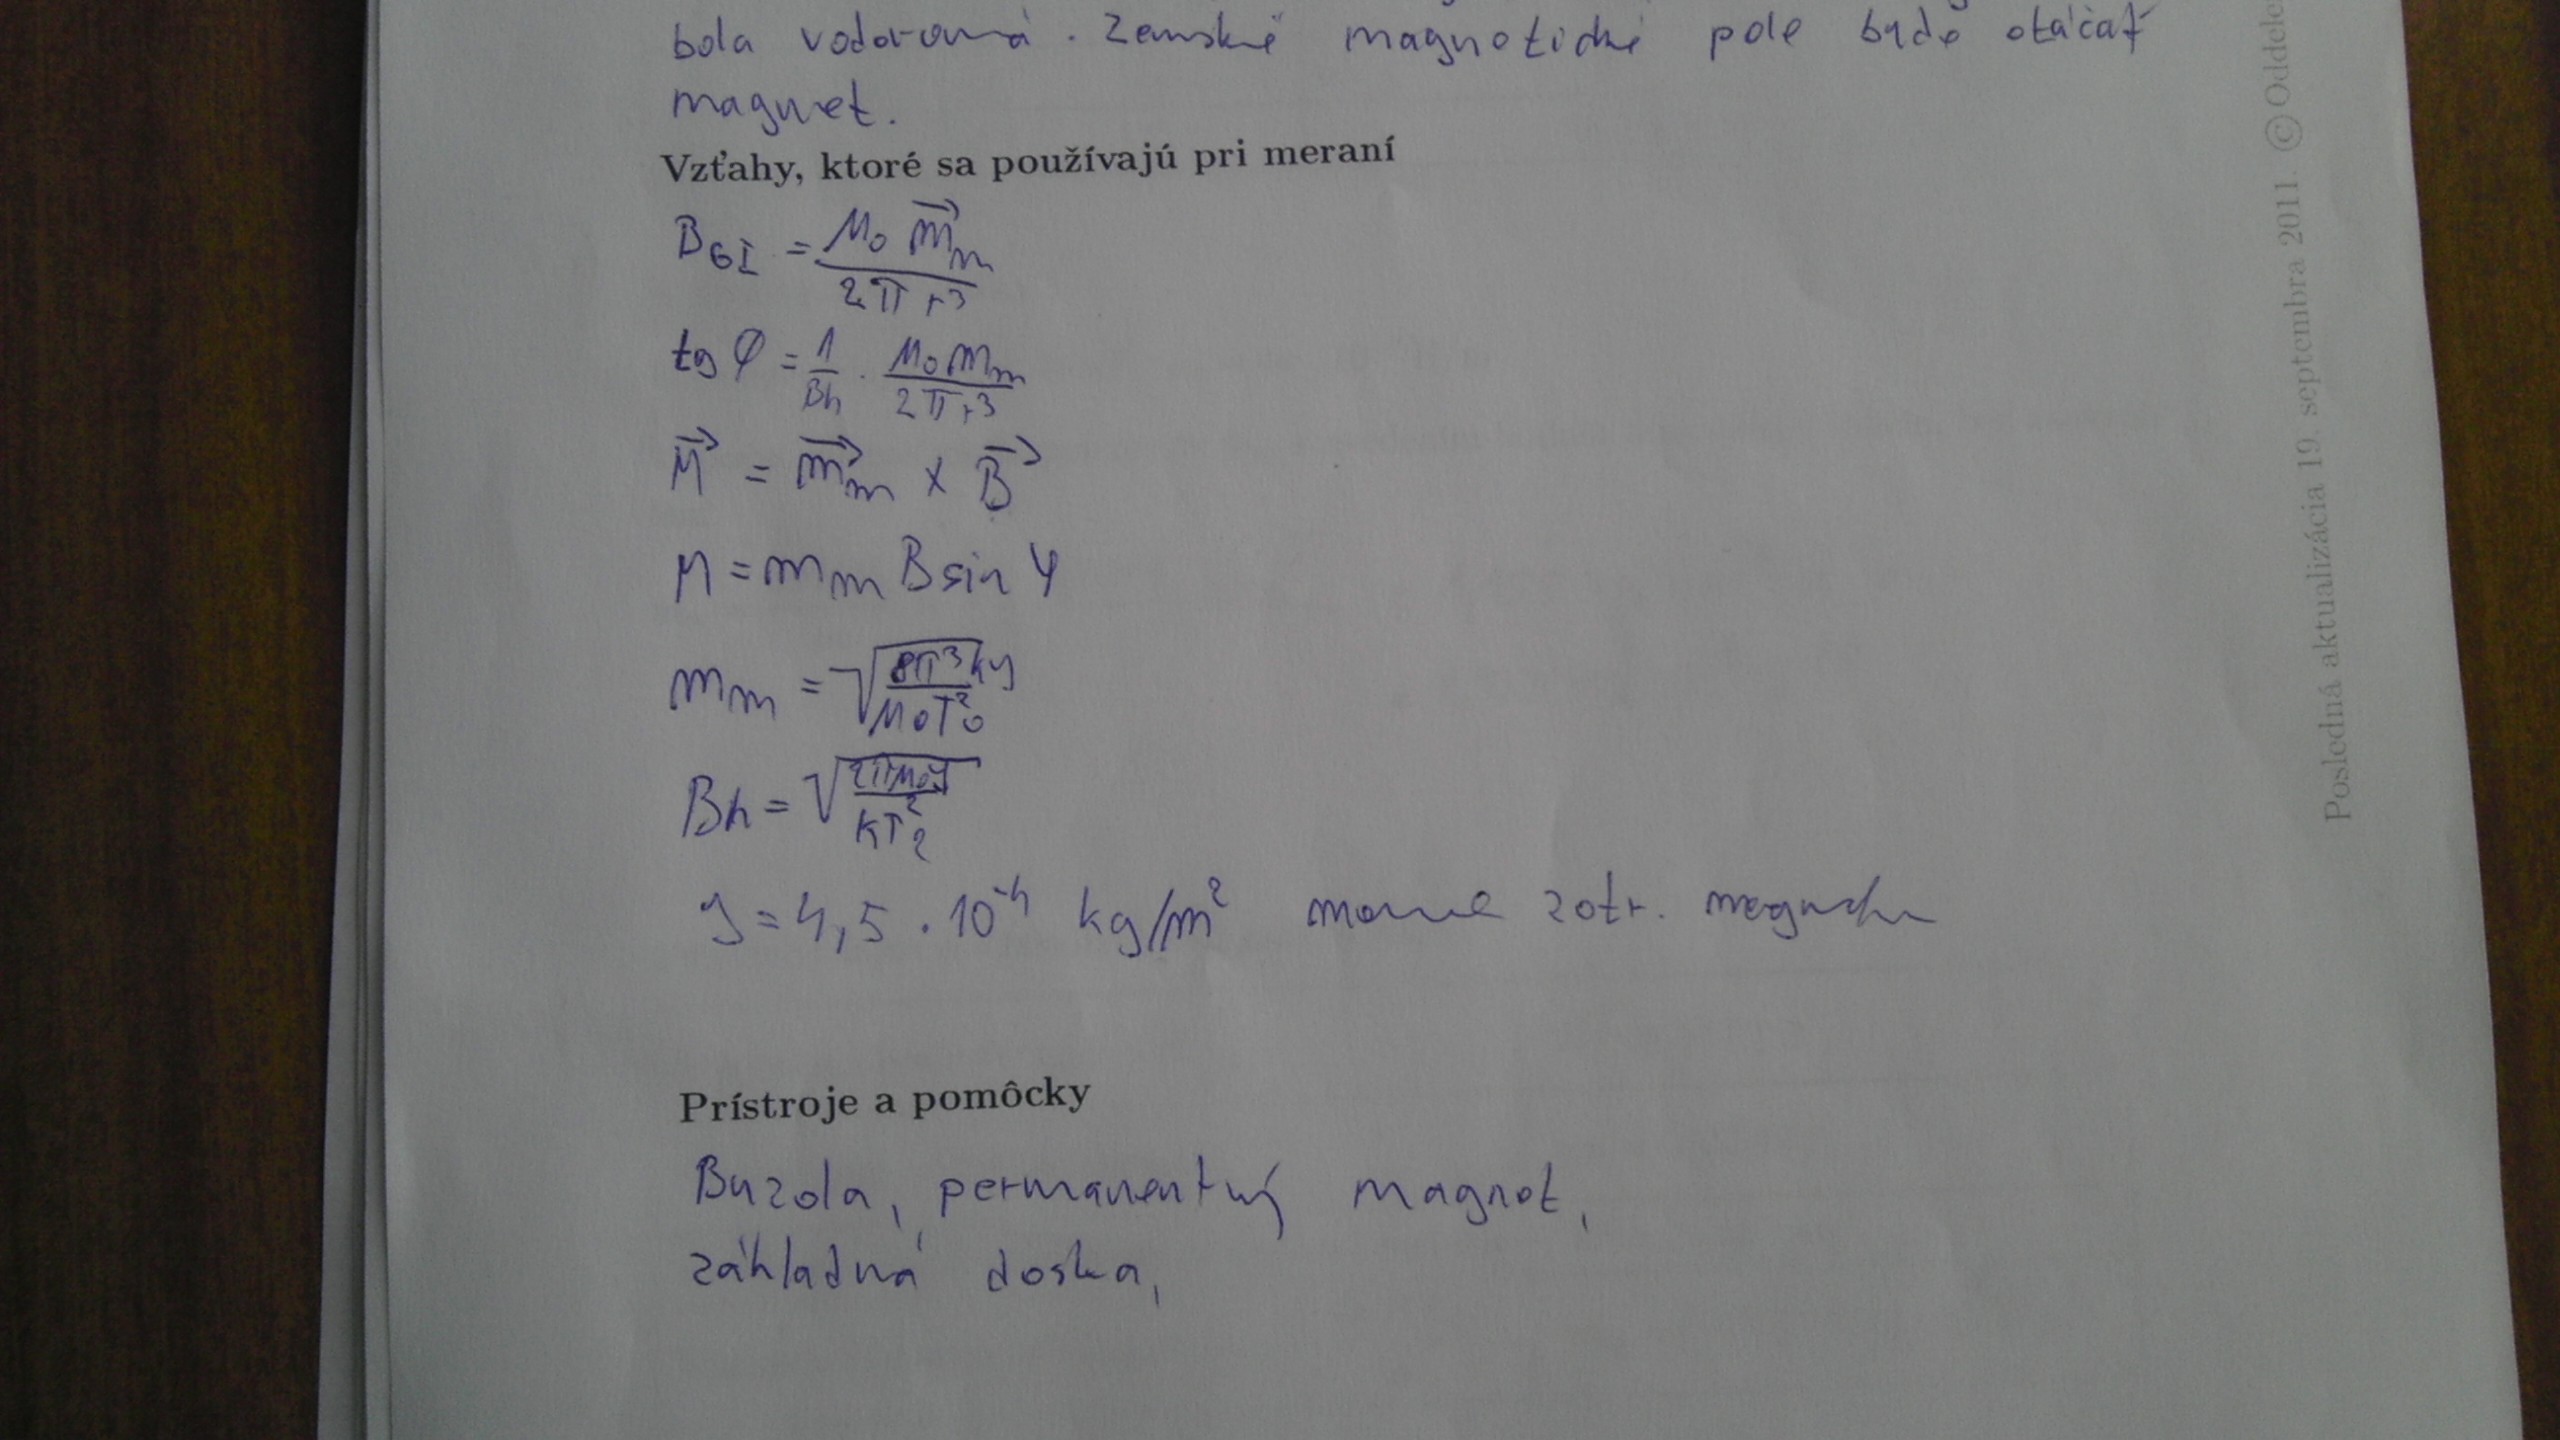 bola vodorovná. Zemské magnetické pole bude otáčať
magnet.
Vzťahy, ktoré sa používajú pri meraní
B_GI = μ₀ m⃗_m / 2πr³
tg φ = 1/Bh · μ₀ m_m / 2πr³
M⃗ = m⃗_m × B⃗
M = m_m B sin φ
m_m = √(8π³kJ / μ₀T₀²)
Bh = √(2πμ₀J / kT₂²)
J = 4,5 · 10⁻⁴ kg/m² zotr.
Prístroje a pomôcky
Buzola, permanentný magnet,
základná doska,
Posledná aktualizácia 19. septembra 2011. ©